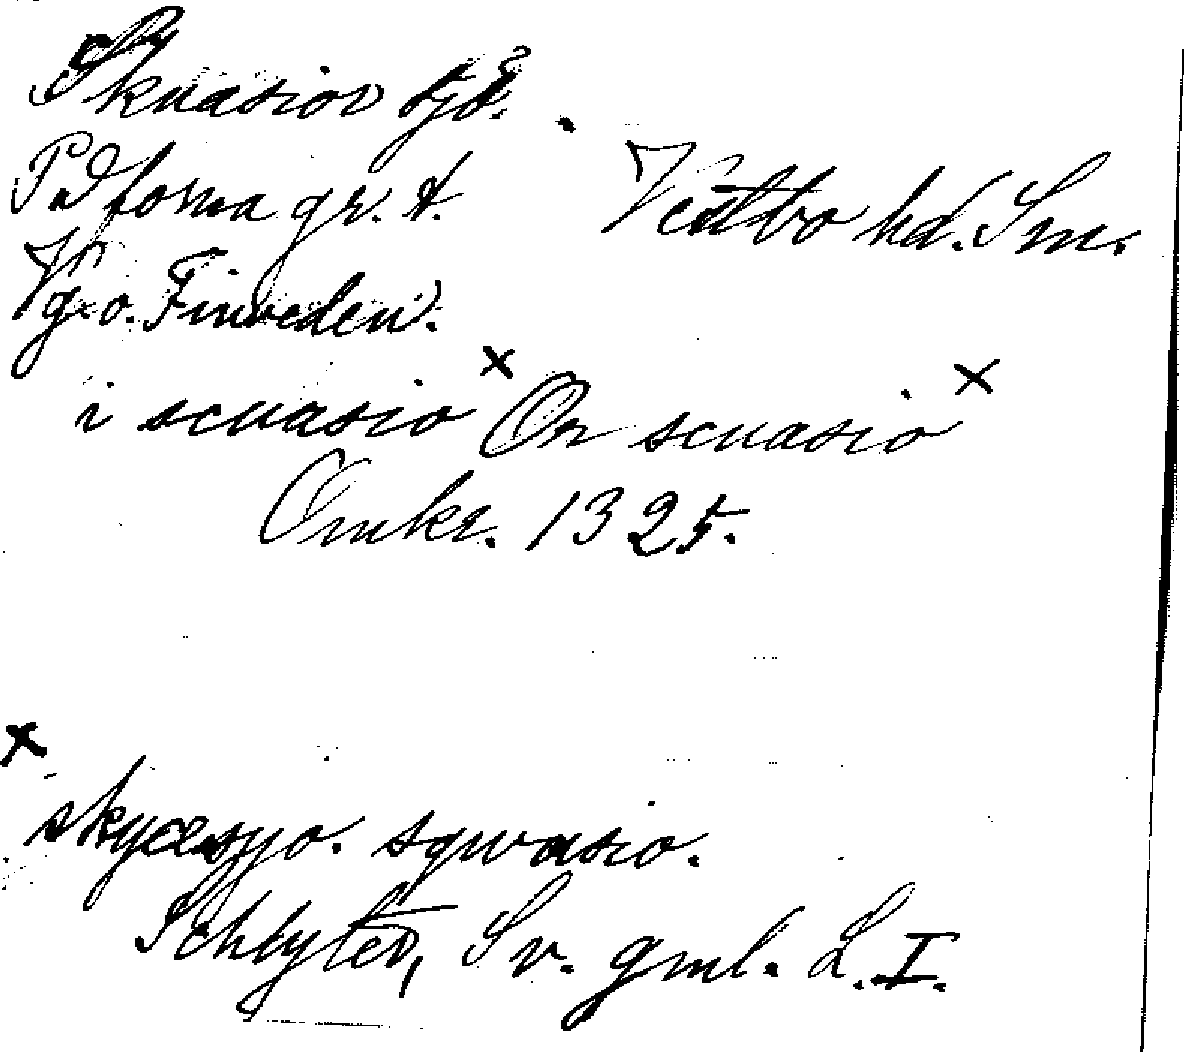 Skuasior sjö.
På forna gr. t. Vestbo hd. Sm.
Vg. o. Finveden.
i scuasio × Or scuasio ×
Omkr. 1325.
× skyæsyo. sqwasio.
Schlyter, Sv. gml. L. I.